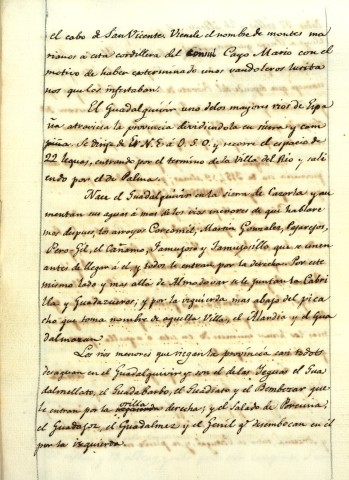 el cabo de San Vicente. Vienele el nombre de montes ma
rianos a esta cordillera del Cayo Mario con el
motivo de haber esterminado unos vandoleros lusita
nos que los infestaban.
El Guadalquivir uno de los mayores rios de Espa
ña atraviesa la provincia dividiendola en sierra y cam
piña. Se dirije de N. E á O. S. O, y recorre el espacio de
22 leguas, entrando por el termino de la Villa del Rio y sali
endo por el de Palma.
Nace el Guadalquivir en la sierra de Cazorla y au
mentan sus aguas á mas de los rios menores de que hablare
mos despues, los arroyos Corcomé, Martin Gonzalez, Cajarejos,
Pero-Gil, el Cañamo, Tamujoso y Tamujosillo que se unen
antes de llegar á el, y todos le entran por la derecha. Por este
mismo lado y mas allá de Almodovar se le juntan la Cabri
lla y Guadazueros; y por la izquierda mas abajo del pica
cho que toma nombre de aquella Villa, el Mardia y el Gua
dalmazan.
Los rios menores que riegan la provincia casi todos
desaguan en el Guadalquivir y son el de las Yeguas el Gua
dalmellato, el Guadabarbo, el Guadiato y el Bembezar que
le entran por la orilla derecha; y el Salado de Porcuna;
el Guadajoz, el Guadalmez y el Genil qe desembocan en el
por la izquierda.